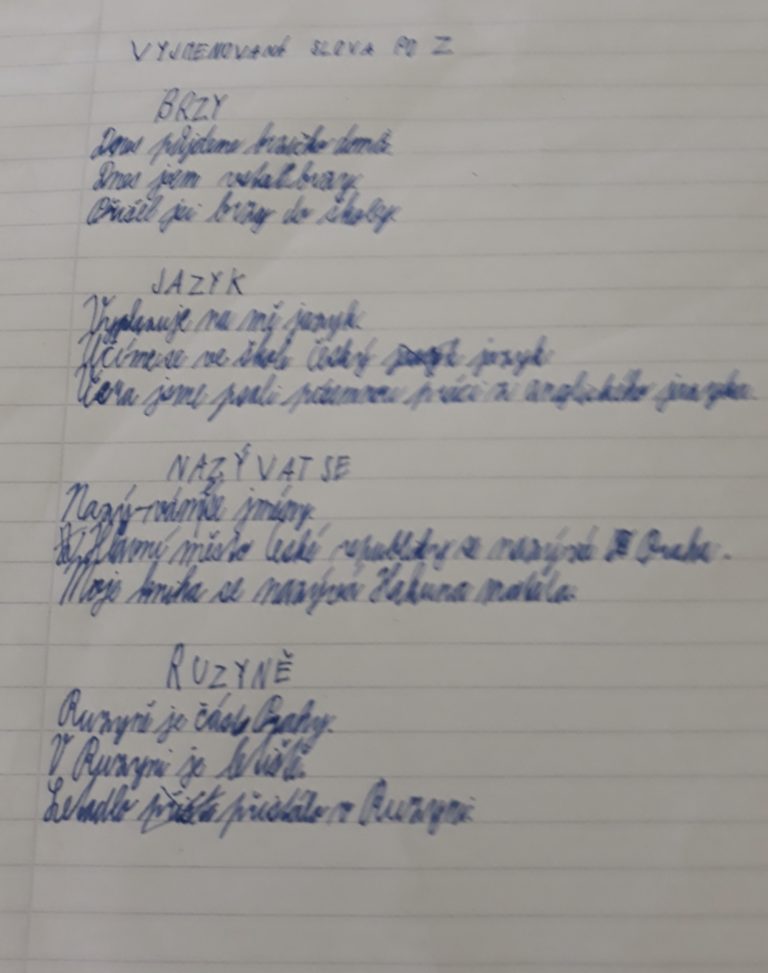 VYJMENOVANÁ SLOVA PO Z
BRZY
Dnes půjdeme brzičko domů.
Dnes jsem vstal brzy.
Přišel jsi brzy do školy.
JAZYK
Vyplazuje na mě jazyk.
Učíme se ve škole český jazyk
Včera jsme psali písemnou práci z anglického jazyka.
NAZÝVAT SE
Nazývám tě jmény.
Hlavní město České republiky se nazývá Praha.
Moje kniha se nazývá Hakuna matata.
RUZYNĚ
Ruzyně je část Prahy.
V Ruzyni je letiště.
Letadlo přistálo v Ruzyni.